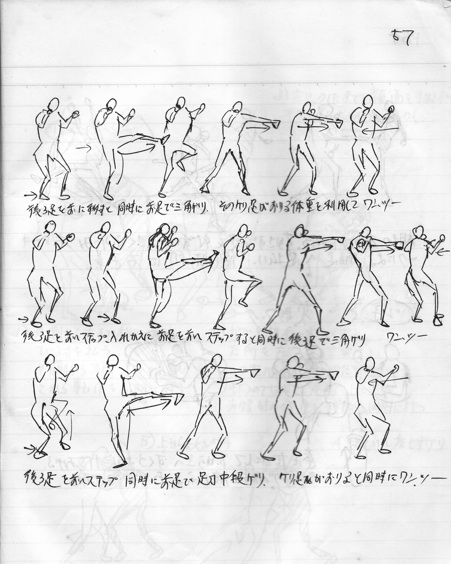 57
後ろ足を前に移すと同時に前足で三角ゲリ、そのケリ足がおりる体重を利用してワンツー
後ろ足を前ステップ入れかえに前足を前ステップすると同時に後ろ足で三角ゲリ ワンツー
後ろ足を前ステップ同時に前足で足刀中段ゲリ、ケリ足がおりると同時にワン、ツー